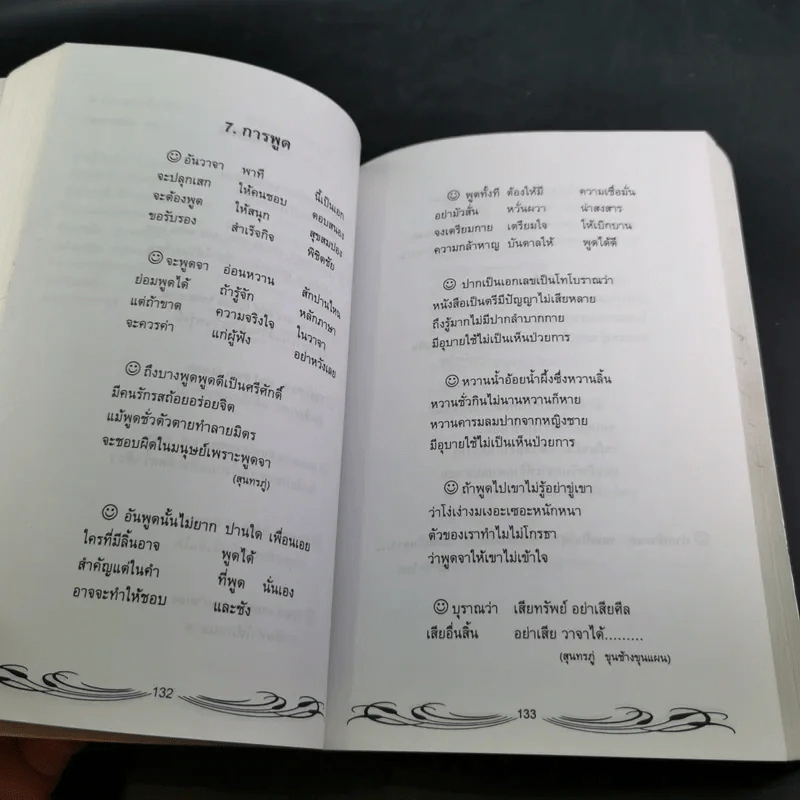 7. การพูด
อันวาจา พาที นี้เป็นเอก
จะปลุกเสก ให้คนชอบ ตอบสนอง
จะต้องพูด ให้สนุก สุขสมปอง
ขอรับรอง สำเร็จกิจ พิชิตชัย
จะพูดจา อ่อนหวาน สักปานไหน
ย่อมพูดได้ ถ้ารู้จัก หลักภาษา
แต่ถ้าขาด ความจริงใจ ในวาจา
จะควรค่า แก่ผู้ฟัง อย่าหวังเลย
ถึงบางพูดพูดดีเป็นศรีศักดิ์
มีคนรักรสถ้อยอร่อยจิต
แม้พูดชั่วตัวตายทำลายมิตร
จะชอบผิดในมนุษย์เพราะพูดจา
(สุนทรภู่)
อันพูดนั้นไม่ยาก ปานใด เพื่อนเอย
ใครที่มีลิ้นอาจ พูดได้
สำคัญแต่ในคำ ที่พูด นั่นเอง
อาจจะทำให้ชอบ และชัง
132
พูดทั้งที ต้องให้มี ความเชื่อมั่น
อย่ามัวสั่น หวั่นผวา น่าสงสาร
จงเตรียมกาย เตรียมใจ ให้เบิกบาน
ความกล้าหาญ บันดาลให้ พูดได้ดี
ปากเป็นเอกเลขเป็นโทโบราณว่า
หนังสือเป็นตรีมีปัญญาไม่เสียหลาย
ถึงรู้มากไม่มีปากลำบากกาย
มีอุบายใช้ไม่เป็นเห็นป่วยการ
หวานน้ำอ้อยน้ำผึ้งซึ่งหวานลิ้น
หวานชั่วกินไม่นานหวานก็หาย
หวานคารมลมปากจากหญิงชาย
มีอุบายใช้ไม่เป็นเห็นป่วยการ
ถ้าพูดไปเขาไม่รู้อย่าขู่เขา
ว่าโง่เง่างมเงอะเซอะหนักหนา
ตัวของเราทำไมไม่โกรธา
ว่าพูดจาให้เขาไม่เข้าใจ
บุราณว่า เสียทรัพย์ อย่าเสียศีล
เสียอื่นสิ้น อย่าเสีย วาจาได้.........
(สุนทรภู่ ขุนช้างขุนแผน)
133